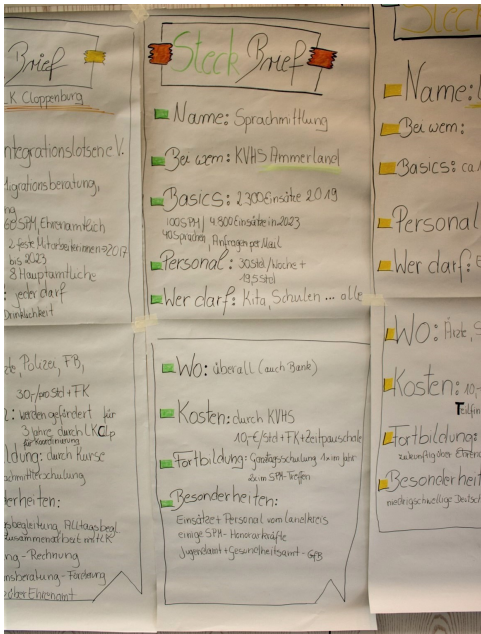 Brief
LK Cloppenburg
Integrationslotsene V.
Migrationsberatung,
60 SPM, Ehrenamtlich
2 feste Mitarbeiterinnen → 2017
bis 2023
8 Hauptamtliche
: jeder darf
Dringlichkeit
Polizei, FB,
30,-/pro Std + FK
werden gefördert für
3 Jahre durch LK Clp
für Koordinierung
durch Kurse
erheiten:
Alltagsbegl.
Zusammenarbeit mit LK
ng - Rechnung
nsberatung - Förderung
über Ehrenamt
Steck Brief
Name: Sprachmittlung
Bei wem: KVHS Ammerland
Basics: 2300 Einsätze 2019
100 SPM / 4.800 Einsätze in 2023
40 Sprachen, Anfragen per Mail
Personal: 30 Std/Woche +
19,5 Std
Wer darf: Kita, Schulen ... alle
Wo: überall (auch Bank)
Kosten: durch KVHS
10,-€/Std + FK + Zeitpauschale
Fortbildung: Ganztagsschulung 1x im Jahr
2x im SPM-Treffen
Besonderheiten:
Einsätze + Personal vom Landkreis
einige SPM - Honorarkräfte
Jugendamt + Gesundheitsamt - GfB
Steck
Name:
Bei wem:
Basics: ca
Personal
Wer darf:
Wo: Ärzte, S
Kosten: 10,-
Fortbildung:
Besonderheit
niedrigschwellige Deutsch